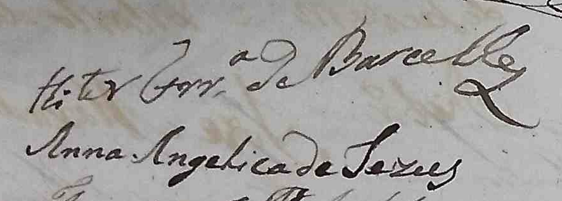 Hitor Frr.ª de Barcellos
Anna Angelica de Jezus